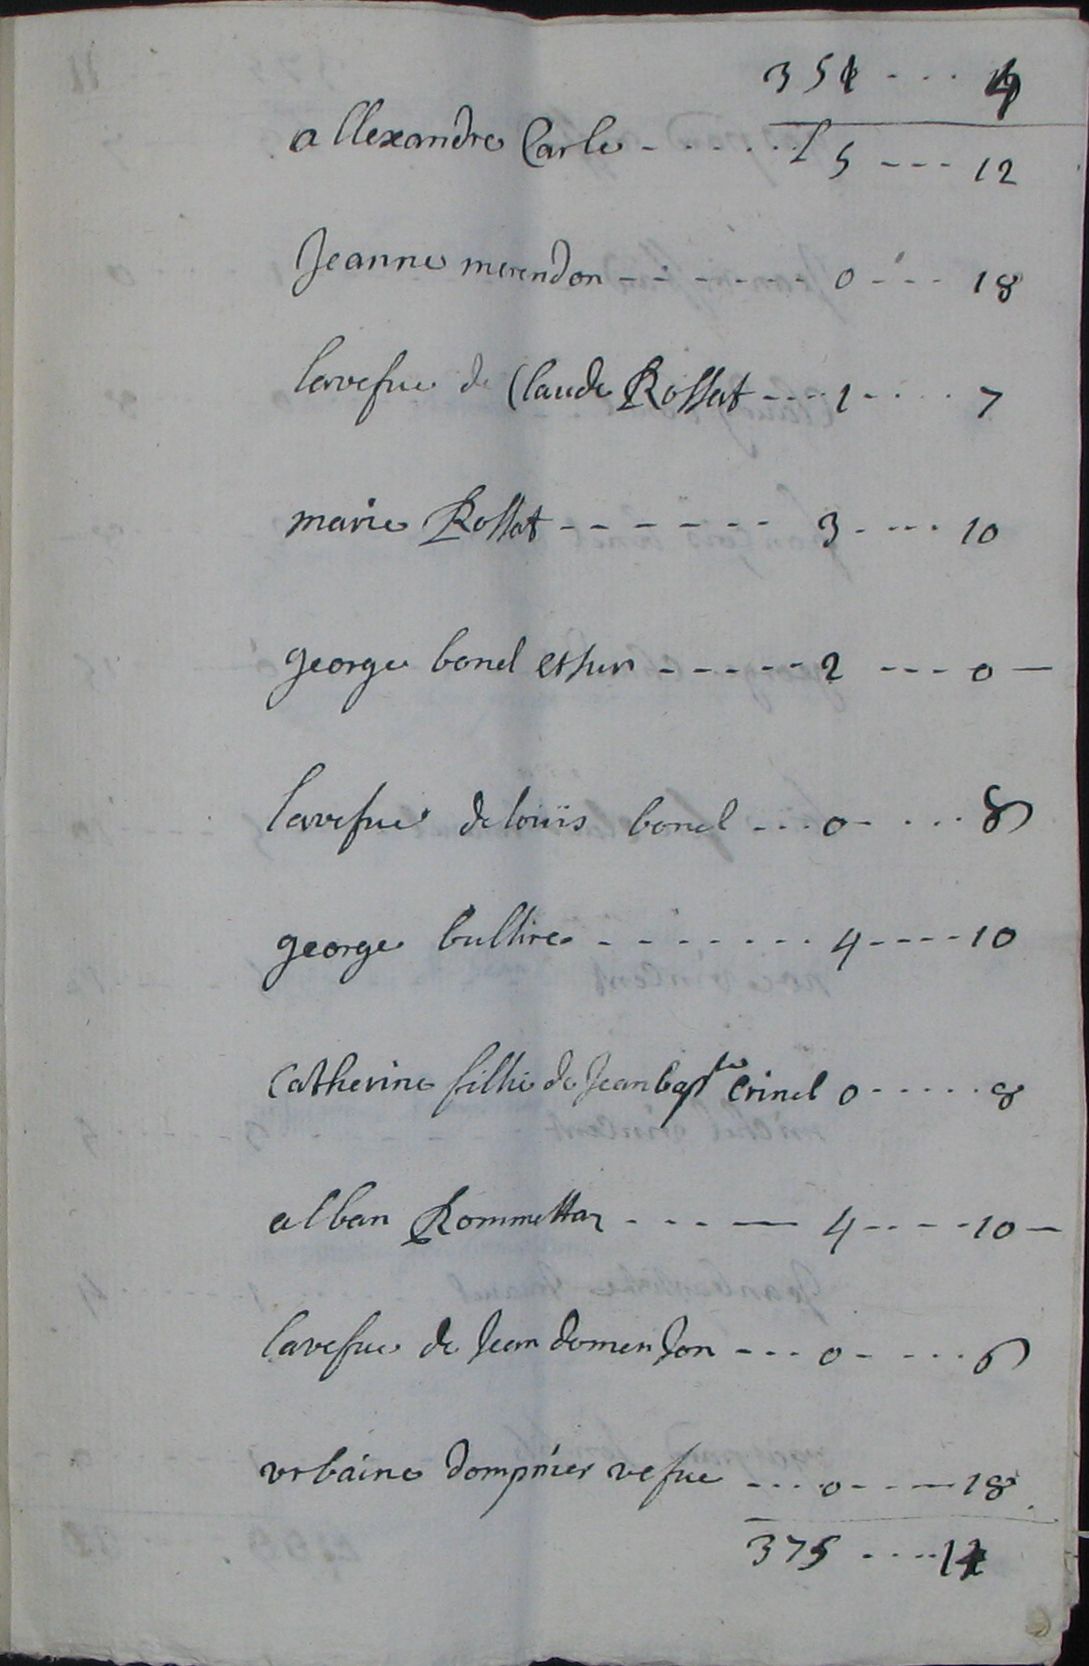 351 - - - 4
allexandre Carle - - - - - L 5 - - - 12
Jeanne merendon - - - - - - - 0 - - - 18
lavefue de Claude Rossat - - - 1 - - - - 7
marie Rossat - - - - - - 3 - - - 10
george bonel - - - - - 2 - - - 0 —
lavefue de louïs bonel - - - 0 - - - - 8
george bulline - - - - - - - 4 - - - - 10
Catherine fillie de Jean bapte Crinel 0 - - - - - 8
alban Rommettaz - - - — 4 - - - - 10 —
lavefue de Jean domenJon - - - 0 - - - - 6
vrbaine dompnier vefue - - - 0 - - — 18
375 - - - - 11